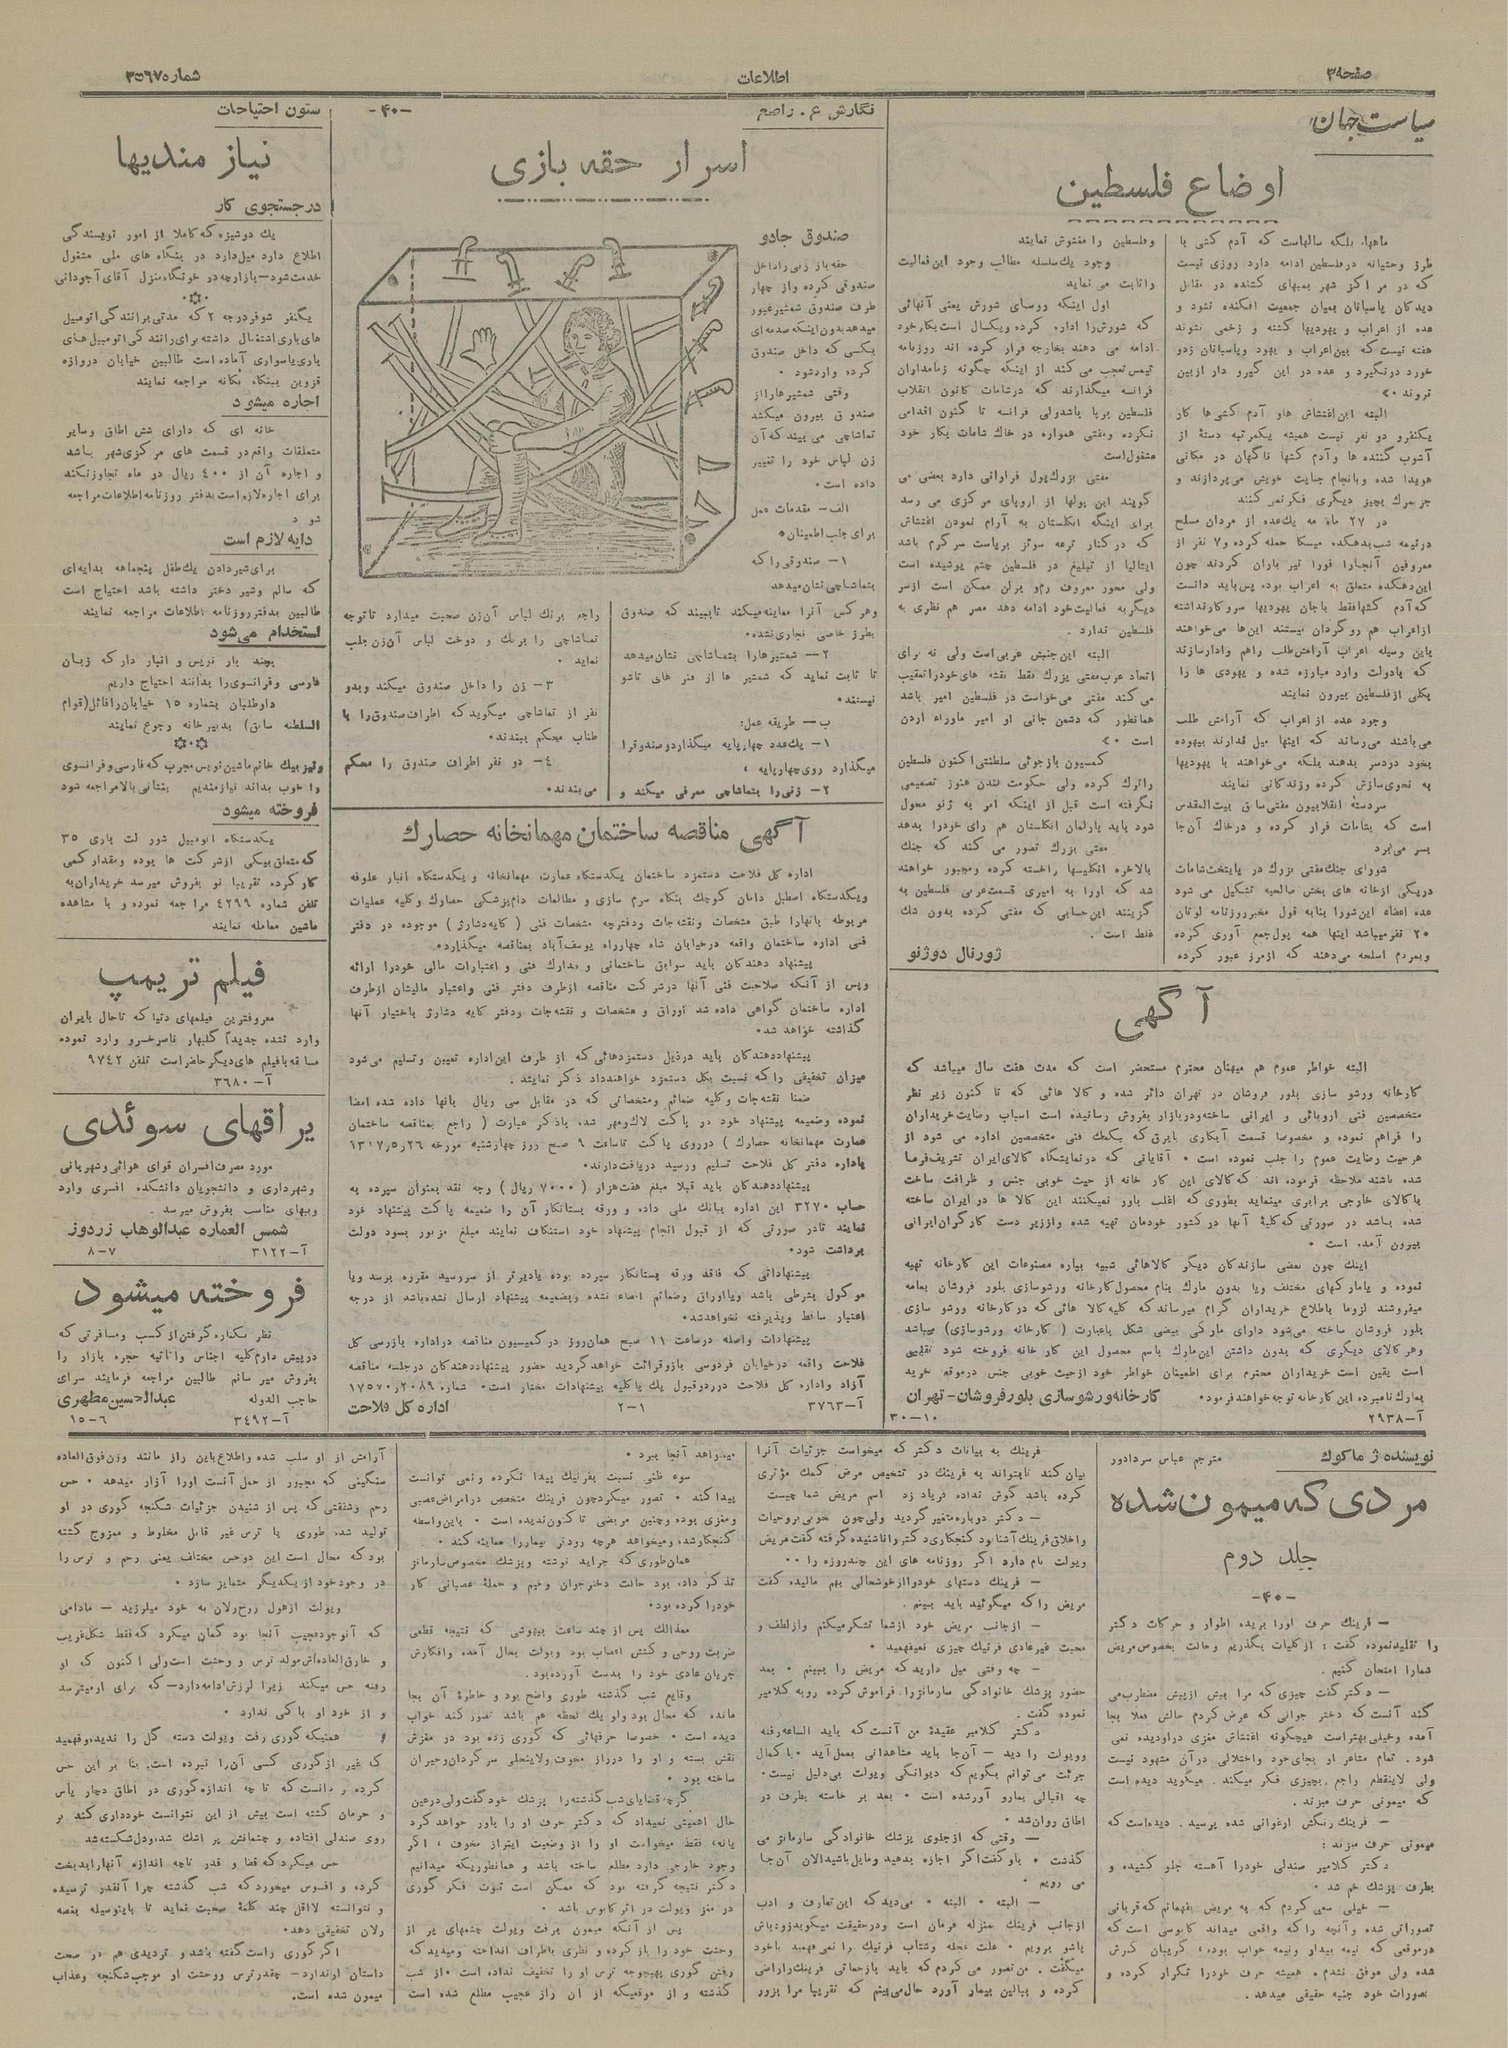 صفحه ۳
اطلاعات
شماره ۳۵۶۷
سیاست جهان
اوضاع فلسطین
ماهها، بلکه سالهاست که آدم کشی با
طرز وحشیانه در فلسطین ادامه دارد روزی نیست
که در مراکز شهر بمبهای کشنده در مقابل
دیدگان پاسبانان بمیان جمعیت افکنده نشود و
عده از اعراب و یهودیها کشته و زخمی نشوند
هفته نیست که بین اعراب و یهود و پاسبانان زدو
خورد درنگیرد و عده در این گیرو دار از بین
نروند »
البته این اغتشاش ها و آدم کشی‌ها کار
یکنفر و دو نفر نیست همیشه یکمرتبه دستهٔ از
آشوب کننده ها و آدم کشها ناگهان در مکانی
هویدا شده و بانجام جنایت خویش می‌پردازند و
جز مرگ بچیز دیگری فکر نمی کنند
در ۲۷ ماه مه یک‌عده از مردان مسلح
در نیمه شب بدهکده میسکا حمله کرده و ۷ نفر از
معروفین آنجا را فورا تیر باران کردند چون
این دهکده متعلق به اعراب بوده پس باید دانست
که آدم کشها فقط با جان یهودیها سروکار نداشته
از اعراب هم روگردان نیستند این‌ها می‌خواهند
باین وسیله اعراب آرامش طلب را هم وادار سازند
که با دولت وارد مبارزه شده و یهودی ها را
بکلی از فلسطین بیرون نمایند
وجود عده از اعراب که آرامش طلب
می باشند می‌رساند که اینها میل ندارند بیهوده
بخود دردسر بدهند بلکه می‌خواهند با یهودیها
به نحوی سازش کرده و زندگانی نمایند
سردستهٔ انقلابیون مفتی سابق بیت المقدس
است که بشامات فرار کرده و در خاک آن‌جا
بسر می‌برد
شورای جنگ مفتی بزرگ در پایتخت شامات
در یکی از خانه های بخش صالحیه تشکیل می شود
عده اعضاء این شورا بنابه قول مخبر روزنامه لوتان
۲۰ نفر میباشد اینها همه پول جمع آوری کرده
و بمردم اسلحه می‌دهند که از مرز عبور کرده
و فلسطین را مغشوش نمایند
وجود یک سلسله مطالب وجود این فعالیت
را ثابت می نماید
اول اینکه روسای شورش یعنی آنهائی
که شورش را اداره کرده و یکسال است بکار خود
ادامه می دهند بخارجه فرار کرده اند روزنامه
تیمس تعجب می کند از اینکه چگونه زمامداران
فرانسه میگذارند که در شامات کانون انقلاب
فلسطین برپا باشد ولی فرانسه تا کنون اقدامی
نکرده و مفتی همواره در خاک شامات بکار خود
مشغول است
مفتی بزرگ پول فراوانی دارد بعضی می
گویند این پولها از اروپای مرکزی می رسد
برای اینکه انگلستان به آرام نمودن اغتشاش
که در کنار ترعه سوئز برپاست سرگرم باشد
ایتالیا از تبلیغ در فلسطین چشم پوشیده است
ولی محور معروف رم و برلن ممکن است از سر
دیگر به فعالیت خود ادامه دهد مصر هم نظری به
فلسطین ندارد .
البته این جنبش عربی است ولی نه برای
اتحاد عرب مفتی بزرگ فقط نقشه های خود را تعقیب
می کند مفتی می‌خواست در فلسطین امیر باشد
همانطور که دشمن جانی او امیر ماوراء اردن
است . »
کمسیون بازجوئی سلطنتی اکنون فلسطین
را ترک کرده ولی حکومت لندن هنوز تصمیمی
نگرفته است قبل از اینکه امر به ژنو محول
شود باید پارلمان انگلستان هم رای خود را بدهد
مفتی بزرگ تصور می کند که جنگ
بالاخره انگلیسها را خسته کرده و مجبور خواهند
شد که او را به امیری قسمت عربی فلسطین به
گزینند این حسابی که مفتی کرده بدون شک
غلط است .
ژورنال دوژنو
آگهی
البته خواطر عموم هم میهنان محترم مستحضر است که مدت هفت سال میباشد که
کارخانه ورشو سازی بلور فروشان در تهران دائر شده و کالا هائی که تا کنون زیر نظر
متخصصین فنی اروپائی و ایرانی ساخته و در بازار بفروش رسانیده است اسباب رضایت خریداران
را فراهم نموده و مخصوصا قسمت آبکاری با برق که بکمک فنی متخصصین اداره می شود از
هر حیث رضایت عموم را جلب نموده است . آقایانی که در نمایشگاه کالای ایران تشریف فرما
شده باشند ملاحظه فرموده اند که کالای این کار خانه از حیث خوبی جنس و ظرافت ساخت
با کالای خارجی برابری مینماید بطوری که اغلب باور نمیکنند این کالا ها در ایران ساخته
شده باشد در صورتی که کلیهٔ آنها در کشور خودمان تهیه شده و از زیر دست کارگران ایرانی
بیرون آمده است .
اینک چون بعضی سازندگان دیگر کالاهائی شبیه بپاره مصنوعات این کارخانه تهیه
نموده و با مارکهای مختلف و یا بدون مارک بنام محصول کارخانه ورشوسازی بلور فروشان بعامه
میفروشند لزوما باطلاع خریداران گرام میرساند که کلیه کالا هائی که در کارخانه ورشو سازی
بلور فروشان ساخته می‌شود دارای مارکی بیضی شکل با عبارت ( کارخانه ورشوسازی) میباشد
و هر کالای دیگری که بدون داشتن این مارک باسم محصول این کار خانه فروخته شود تقلبی
است یقین است خریداران محترم برای اطمینان خواطر خود از حیث خوبی جنس در موقع خرید
بمارک نامبرده این کارخانه توجه خواهند فرمود. کارخانه ورشوسازی بلورفروشان - تهران
آ-۲۹۳۸
۱۰-۳۰
نگارش ع. راصع
-۴۰-
اسرار حقه بازی
صندوق جادو
حقه باز زنی را داخل
صندوقی کرده و از چهار
طرف صندوق شمشیر عبور
میدهد بدون اینکه صدمه ای
بکسی که داخل صندوق
کرده وارد شود .
وقتی شمشیرها را از
صندوق بیرون میکشد
تماشاچی می بیند که آن
زن لباس خود را تغییر
داده است .
الف- مقدمات عمل
برای جلب اطمینان .
۱- صندوقی را که
بتماشاچی نشان میدهد
و هر کس آنرا معاینه میکند تا ببیند که صندوق
بطرز خاصی نجاری نشده.
۲- شمشیرها را بتماشاچی نشان میدهد
تا ثابت نماید که شمشیر ها از فنر های تاشو
نیستند .
ب- طریقه عمل:
۱- یکعدد چهارپایه میگذارد و صندوق را
میگذارد روی چهارپایه ،
۲- زنی را بتماشاچی معرفی میکند و
راجع برنگ لباس آن زن صحبت میدارد تا توجه
تماشاچی را برنگ و دوخت لباس آن زن جلب
نماید .
۳- زن را داخل صندوق میکند و بدو
نفر از تماشاچی میگوید که اطراف صندوق را با
طناب محکم ببندند.
۴- دو نفر اطراف صندوق را محکم
می بندند.
آگهی مناقصه ساختمان مهمانخانه حصارک
اداره کل فلاحت دستمزد ساختمان یکدستگاه عمارت مهمانخانه و یکدستگاه انبار علوفه
و یکدستگاه اصطبل دامان کوچک بنگاه سرم سازی و مطالعات دام پزشکی حصارک و کلیه عملیات
مربوطه بانها را طبق مشخصات و نقشه جات و دفترچه مشخصات فنی ( کایه دشارژ ) موجوده در دفتر
فنی اداره ساختمان واقعه در خیابان شاه چهارراه یوسف آباد بمناقصه میگذارد.
پیشنهاد دهندگان باید سوابق ساختمانی و مدارک فنی و اعتبارات مالی خود را ارائه
و پس از آنکه صلاحیت فنی آنها در شرکت مناقصه از طرف دفتر فنی و اعتبار مالیشان از طرف
اداره ساختمان گواهی داده شد اوراق و مشخصات و نقشه جات و دفتر کایه دشارژ باختیار آنها
گذاشته خواهد شد.
پیشنهاد دهندگان باید در ذیل دستمزدهائی که از طرف این اداره تعیین و تسلیم می شود
میزان تخفیفی را که نسبت بکل دستمزد خواهند داد ذکر نمایند .
ضمنا نقشه جات و کلیه ضمائم و مشخصاتی که در مقابل سی ریال بانها داده شده امضا
نموده و ضمیمه پیشنهاد خود در پاکت لاک و مهر شده با ذکر عبارت ( راجع بمناقصه ساختمان
عمارت مهمانخانه حصارک ) در روی پاکت تا ساعت ۹ صبح روز چهارشنبه مورخه ۲۶ر۵ر۱۳۱۷
باداره دفتر کل فلاحت تسلیم و رسید دریافت دارند.
پیشنهاد دهندگان باید قبلا مبلغ هفت هزار ( ۷۰۰۰ ریال ) وجه نقد بعنوان سپرده به
حساب ۳۲۷۰ این اداره ببانک ملی داده و ورقه بستانکار آن را ضمیمه پاکت پیشنهاد خود
نمایند تا در صورتی که از قبول انجام پیشنهاد خود استنکاف نمایند مبلغ مزبور بسود دولت
برداشت شود.
پیشنهاداتی که فاقد ورقه بستانکار سپرده بوده یا دیرتر از سررسید مقرره برسد و یا
موکول بشرطی باشد و یا اوراق و ضمائم امضاء نشده و بضمیمه پیشنهاد ارسال نشده باشد از درجه
اعتبار ساقط و پذیرفته نخواهد شد.
پیشنهادات واصله در ساعت ۱۱ صبح همان روز در کمیسیون مناقصه در اداره بازرسی کل
فلاحت واقعه در خیابان فردوسی باز و قرائت خواهد گردید حضور پیشنهاد دهندگان در جلسه مناقصه
آزاد و اداره کل فلاحت در رد و قبول یک یا کلیه پیشنهادات مختار است. شماره ۲۰۸۹ر۱۷۵۷۰
آ-۳۷۶۳
۱-۲
اداره کل فلاحت
ستون احتیاجات
نیازمندیها
در جستجوی کار
یک دوشیزه که کاملا از امور نویسندگی
اطلاع دارد میل دارد در بنگاه های ملی مشغول
خدمت شود - بازارچه در خونگاه منزل آقای آجودانی
یکنفر شوفر درجه ۲ که مدتی برانندگی اتومبیل
های باری اشتغال داشته برای رانندگی اتومبیل های
باری یا سواری آماده است طالبین خیابان دروازه
قزوین ببنگاه یگانه مراجعه نمایند
اجاره میشود
خانه ای که دارای شش اطاق و سایر
متعلقات واقع در قسمت های مرکزی شهر باشد
و اجاره آن از ۴۰۰ ریال در ماه تجاوز نکند
برای اجاره لازم است بدفتر روزنامه اطلاعات مراجعه
شود
دایه لازم است
برای شیر دادن یک طفل پنجماهه بدایه‌ای
که سالم و شیر دختر داشته باشد احتیاج است
طالبین بدفتر روزنامه اطلاعات مراجعه نمایند
استخدام می‌شود
بچند بار نویس و انبار دار که زبان
فارسی و فرانسوی را بدانند احتیاج داریم
داوطلبان بشماره ۱۵ خیابان رافائل (قوام
السلطنه سابق) بدبیرخانه رجوع نمایند
و نیز بیک خانم ماشین نویس مجرب که فارسی و فرانسوی
را خوب بداند نیازمندیم بنشانی بالا مراجعه شود
فروخته میشود
یکدستگاه اتومبیل شورلت باری ۳۵
که متعلق بیکی از شرکت ها بوده و مقدار کمی
کار کرده تقریبا نو بفروش میرسد خریداران به
تلفن شماره ۴۲۹۹ مراجعه نموده و با مشاهده
ماشین معامله نمایند
فیلم تریمپ
معروفترین فیلمهای دنیا که تا حال بایران
وارد نشده جدیداً گلبهار ناصرخسرو وارد نموده
مسابقه با فیلم های دیگر حاضر است تلفن ۹۷۴۲
آ-۳۶۸۰
یراقهای سوئدی
مورد مصرف افسران قوای هوائی و شهربانی
و شهرداری و دانشجویان دانشکده افسری وارد
و ببهای مناسب بفروش میرسد .
شمس العماره عبدالوهاب زردوز
آ-۳۱۲۲
۷-۸
فروخته میشود
نظر بکناره گرفتن از کسب و مسافرتی که
در پیش دارم کلیه اجناس و اثاثیه حجره بازار را
بفروش میرسانم طالبین مراجعه فرمایند سرای
حاجب الدوله
عبدالحسین مطهری
آ-۳۴۹۲
۶-۱۵
نویسنده ژ ماکوک
مترجم عباس سردادور
مردی که میمون شده
جلد دوم
-۴۰-
- فرینک حرف او را بریده، اطوار و حرکات دکتر
را تقلید نموده گفت : از کلیات بگذریم و حالت بخصوص مریض
شما را امتحان کنیم .
- دکتر گفت چیزی که مرا بیش از پیش مضطرب می
کند آنست که دختر جوانی که عرض کردم حالش فعلا بجا
آمده و خیلی بهتر است هیچگونه اغتشاش مغزی در او دیده نمی
شود . تمام مشاعر او بجای خود و اختلالی در آن مشهود نیست
ولی لاینقطع راجع بچیزی فکر میکند . میگوید دیده است
که میمونی حرف میزند .
- فرینک رنگش ارغوانی شده پرسید . دیده است که
میمونی حرف میزند :
دکتر کلامیر صندلی خود را آهسته جلو کشیده و
بطرف پزشک خم شد .
- خیلی سعی کردم که به مریض بفهمانم که قربانی
تصوراتی شده و آنچه را که واقعی میداند کابوسی است که
در موقعی که نیمه بیدار و نیمه خواب بوده، گریبان گیرش
شده ولی موفق نشدم . همیشه حرف خود را تکرار کرده و
تصورات خود جنبه حقیقی میدهد .
فرینک به بیانات دکتر که میخواست جزئیات آنرا
بیان کند تا بتواند به فرینک در تشخیص مرض کمک مؤثری
کرده باشد گوش نداده فریاد زد اسم مریض شما چیست
- دکتر دوباره متغیر گردید ولی چون خوب بروحیات
و اخلاق فرینک آشنا بود کنجکاوی دکتر را ناشنیده گرفته گفت مریض
ویولت نام دارد اگر روزنامه های این چند روزه را . .
- فرینک دستهای خود را از خوشحالی بهم مالیده گفت
مریض را که میگوئید باید ببینم .
- از جانب مریض خود از شما تشکر میکنم و از لطف و
محبت غیرعادی فرنیک چیزی نمیفهمید .
- چه وقتی میل دارید که مریض را ببینم . بعد
حضور پزشک خانوادگی سارمانز را فراموش کرده رو به کلامیر
نموده گفت .
دکتر کلامیر عقیدهٔ من آنست که باید الساعه رفته
و ویولت را دید - آن‌جا باید مشاهداتی بعمل آید . با کمال
جرئت می توانم بگویم که دیوانگی ویولت بی دلیل نیست.
چه اقبالی بما رو آورشده است . بعد بر خاسته بطرف در
اطاق روان شد .
- وقتی که از جلوی پزشک خانوادگی سارمانز می
گذشت . باو گفت اگر اجازه بدهید و مایل باشید الان آن‌جا
می رویم .
- البته . البته . می‌دید که این تعارف و ادب
از جانب فرینک بمنزله فرمان است و در حقیقت میگوید زود باش
پاشو برویم . علت عجله و شتاب فرنیک را نمی فهمید با خود
میگفت . من تصور می کردم که باید با زحماتی فرینک را راضی
کرده و ببالین بیمار آورد حال می‌بینم که تقریبا مرا بزور
میخواهد آنجا ببرد .
سوء ظنی نسبت بفرنیک پیدا نکرده و نمی توانست
پیدا کند . تصور میکرد چون فرینک متخصص در امراض عصبی
و مغزی بوده و چنین مریضی تا کنون ندیده است . باین واسطه
کنجکاو شده و میخواهد هرچه زودتر بیمار را معاینه کند .
همان طوری که جراید نوشته و پزشک مخصوص سارمانز
تذکر داده بود حالت دختر جوان وخیم و حملهٔ عصبانی کار
خود را کرده بود.
معذالک پس از چند ساعت بیهوشی که نتیجه قطعی
ضربت روحی و کشش اعصاب بود ویولت بحال آمده و افکارش
جریان عادی خود را بدست آورده بود .
وقایع شب گذشته طوری واضح بود و خاطرهٔ آن بجا
مانده که محال بود ولو یک لحظه هم باشد تصور کند خواب
دیده است . خصوصا حرفهائی که گوری زده بود در مغزش
نقش بسته و او را در راز مخوف و لاینحلی سرگردان و حیران
ساخته بود .
گرچه قضایای شب گذشته را پزشک خود گفت ولی در عین
حال اهمیتی نمیداد که دکتر حرف او را باور خواهد کرد
یا نه، فقط میخواست او را از وضعیت این راز مخوف، اگر
وجود خارجی دارد مطلع ساخته باشد و همانطوریکه میدانیم
دکتر نتیجه گرفته بود که ممکن است ثبوت فکر گوری
در مغز ویولت در اثر کابوس باشد .
پس از آنکه میمون برفت ویولت چشمهای پر از
وحشت خود را باز کرده و نظری باطراف انداخته و میدید که
رفتن گوری بهیچوجه ترس او را تخفیف نداده است . از شب
گذشته و از موقعیکه از آن راز عجیب مطلع شده است
آرامش از او سلب شده و اطلاع باین راز مانند وزن فوق العاده
سنگینی که مجبور از حمل آنست او را آزار میدهد . حس
رحم و شفقتی که پس از شنیدن جزئیات شکنجه گوری در او
تولید شده، طوری با ترس غیر قابل مخلوط و ممزوج گشته
بود که محال است این دو حس مختلف یعنی رحم و ترس را
در وجود خود از یکدیگر متمایز سازد .
ویولت از هول روح رلان به خود میلرزید - مادامی
که آنو جود عجیب آنجا بود گمان میکرد که فقط شکل غریب
و خارق العاده‌اش مولد ترس و وحشت است ولی اکنون که او
رفته حس میکند زیرا لرزش ادامه دارد - که برای او میترسد
و از خود او باکی ندارد .
همینکه گوری رفت ویولت دسته گل را ندید، و فهمید
که غیر از گوری کسی آن را نبرده است. بنا بر این حس
کرده و دانست که تا چه اندازه گوری در اطاق دچار یأس
و حرمان گشته است بیش از این نتوانست خودداری کند بر
روی صندلی افتاده و چشمانش پر اشک شد، و دل شکسته شد
حس میکرد که قضا و قدر تا چه اندازه آنها را بدبخت
کرده و افسوس میخورد که شب گذشته چرا آنقدر ترسیده
و نتوانسته لااقل چند کلمهٔ صحبت نماید تا باینوسیله بغصه
رلان تخفیفی دهد.
اگر گوری راست گفته باشد و تردیدی هم در صحت
داستان او ندارد - چقدر ترس و وحشت او موجب شکنجه و عذاب
میمون شده است.